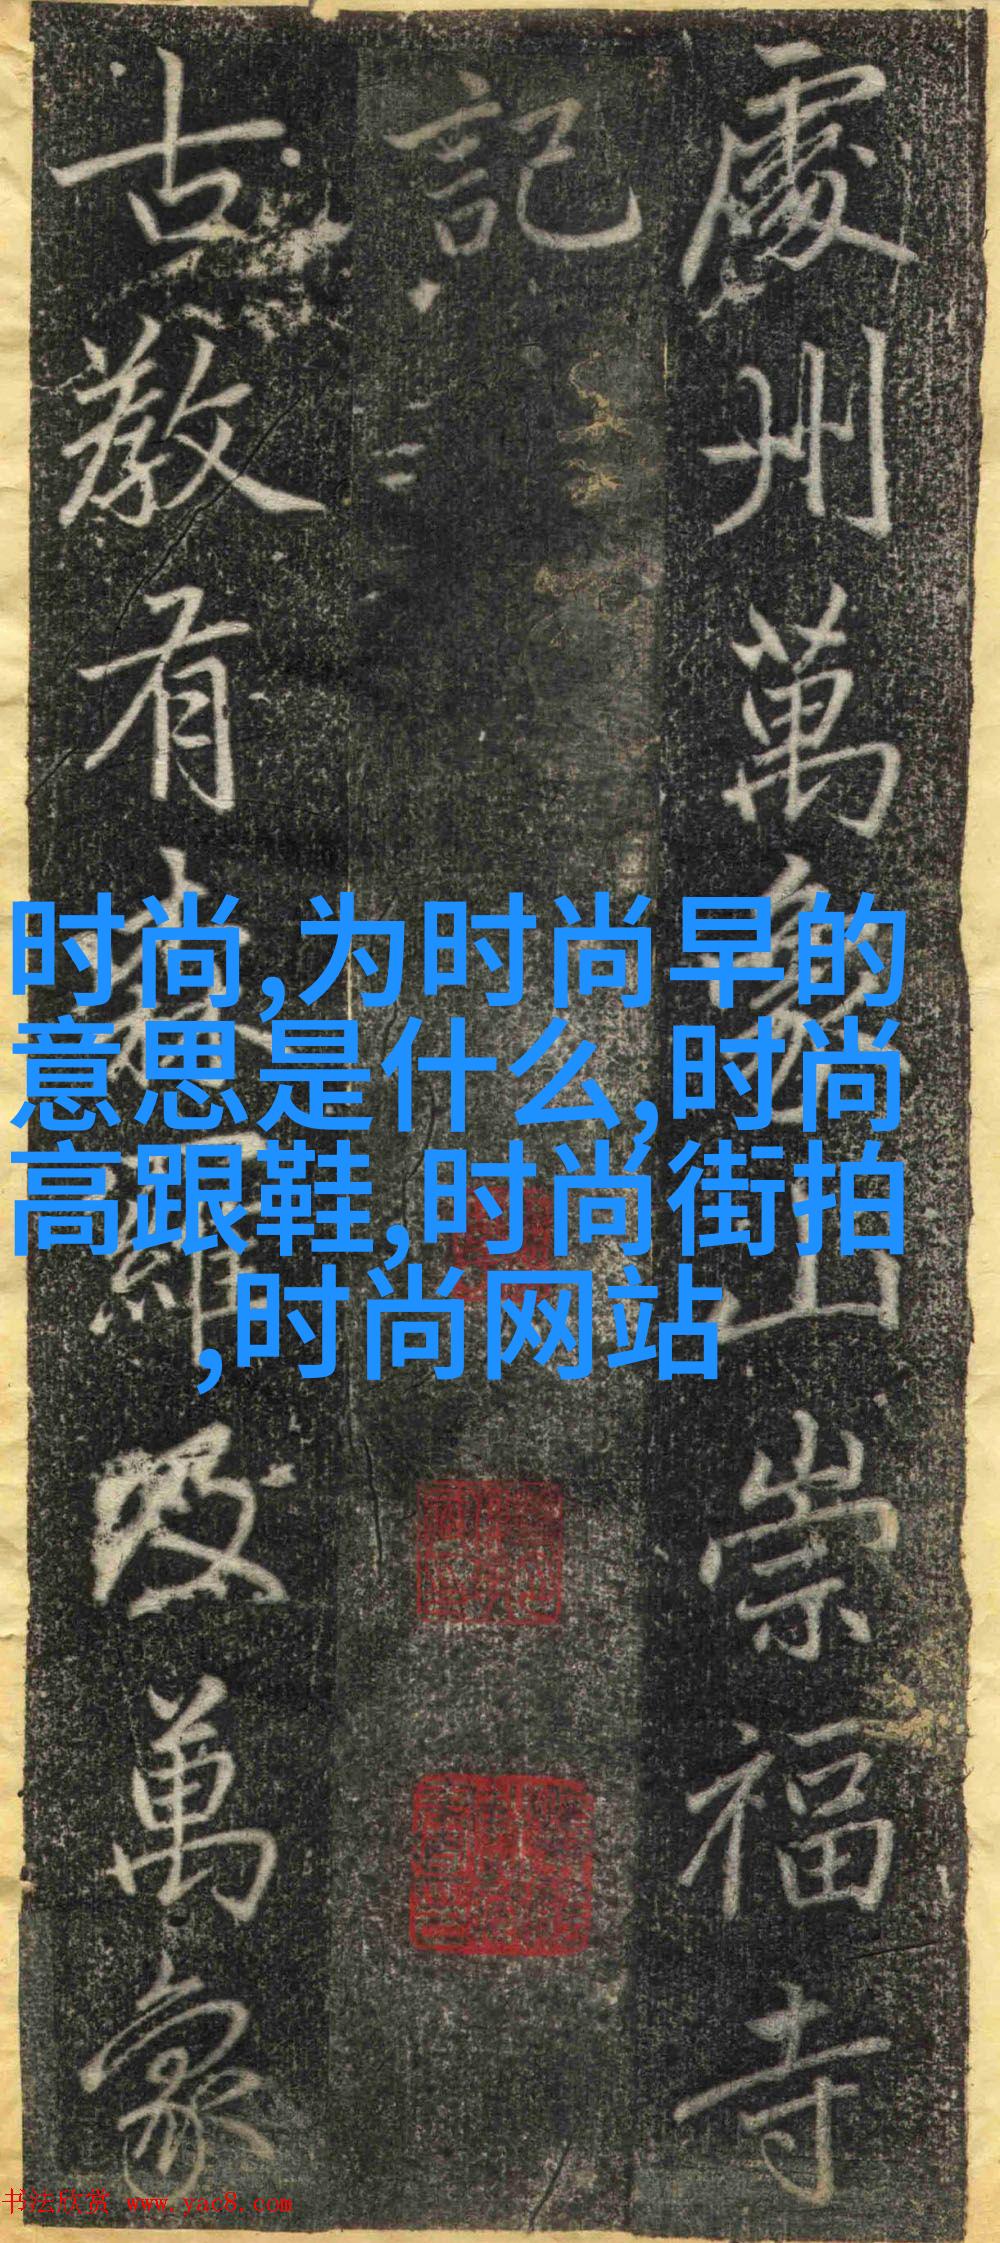 處州萬象山崇福寺
記
古教有森羅及萬象
时尚,为时尚早的
意思是什么,时尚
高跟鞋,时尚街拍
,时尚网站
书法欣赏 www.yac8.com